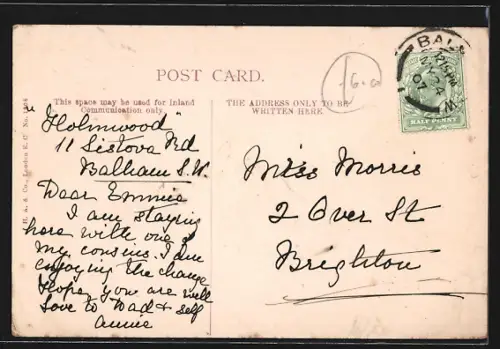 POST CARD.
This space may be used for Inland
Communication only.
THE ADDRESS ONLY TO BE
WRITTEN HERE.
"Holmwood"
11 Sistova Rd
Balham S.W.
Dear Emmie
I am staying
here with one of
my cousins. I am
enjoying the change
Hope you are well
Love to Dad & self
Annie
Miss Morris
2 Over St
Brighton
BAL
07
HALF PENNY